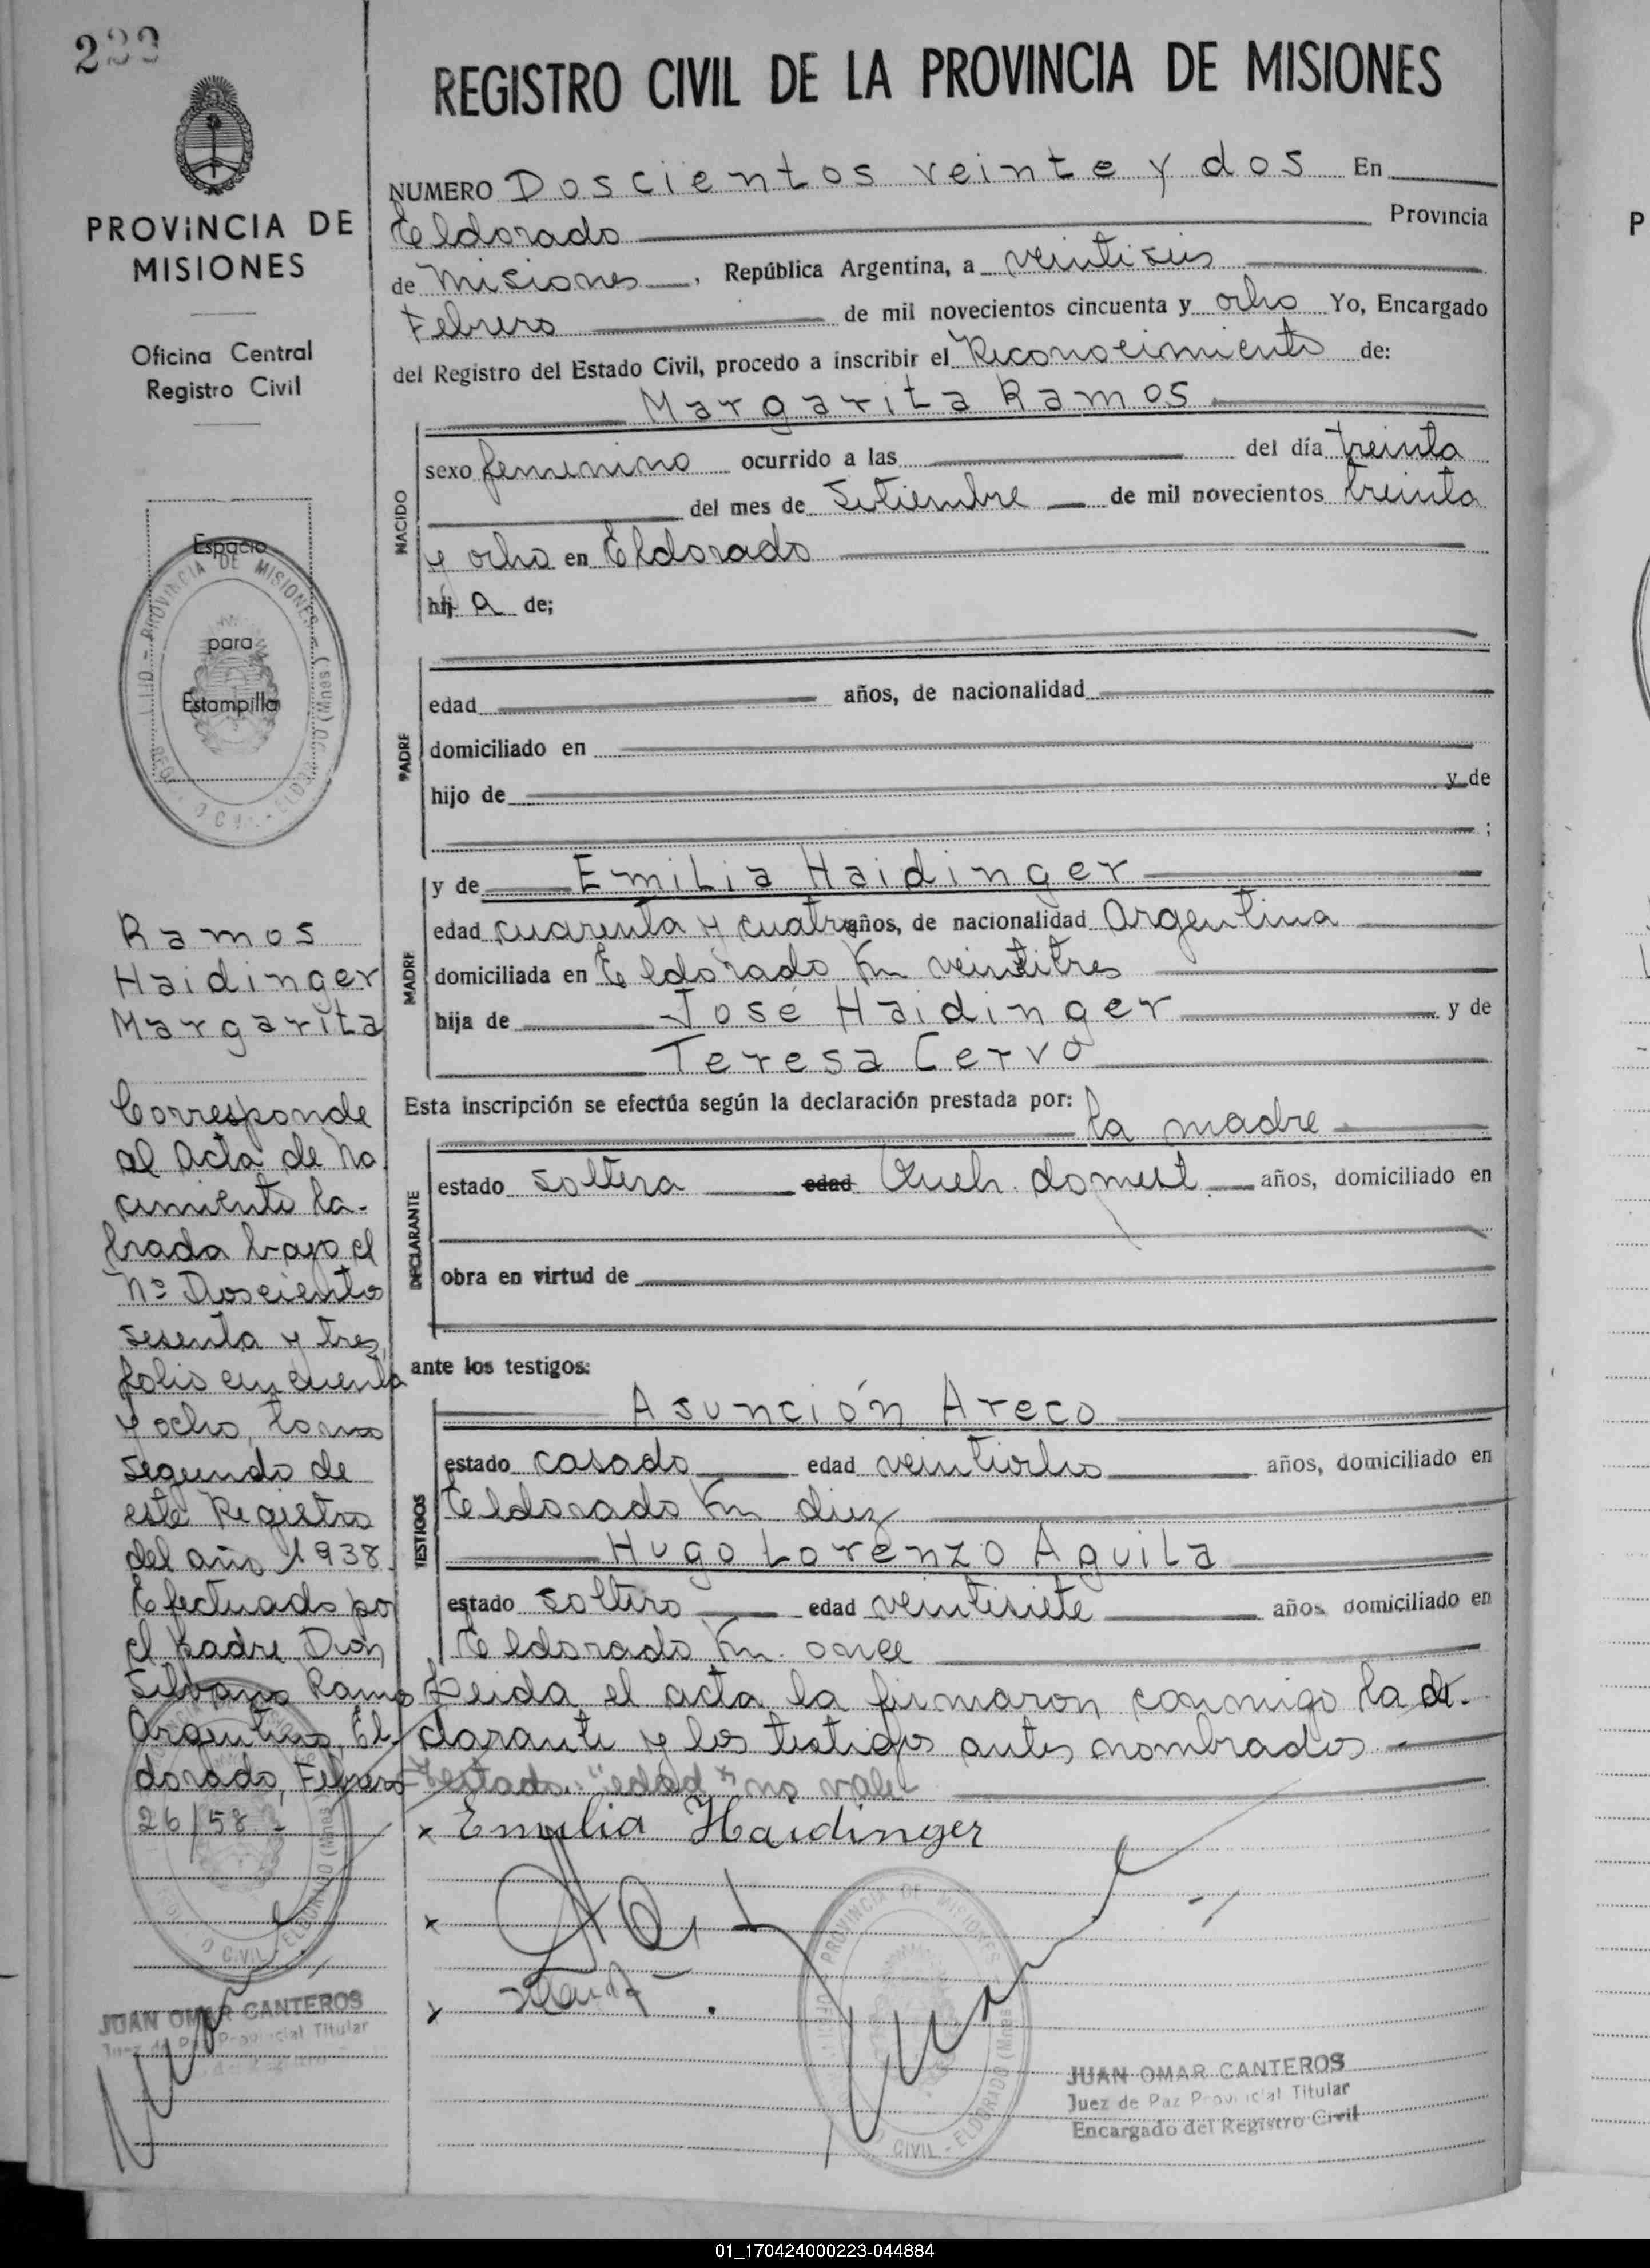 REGISTRO CIVIL DE LA PROVINCIA DE MISIONES
PROVINCIA DE
MISIONES
Oficina Central
Registro Civil
Espacio
para
Estampilla
Ramos
Haidinger
Margarita
Corresponde
al acta de na
cimiento la-
brada bajo el
Nº Doscientos
sesenta y tres
folio cincuenta
y ocho, tomo
segundo de
este Registro
del año 1938.
Efectuado por
el padre Don
Silvano Ramos
Argentino, El
dorado, Febrero
26/58.-
JUAN OMAR CANTEROS
Juez de Paz Provincial Titular
NUMERO Doscientos veinte y dos En
Eldorado Provincia
de Misiones, República Argentina, a veintiseis
Febrero de mil novecientos cincuenta y ocho Yo, Encargado
del Registro del Estado Civil, procedo a inscribir el Reconocimiento de:
Margarita Ramos
NACIDO
sexo femenino ocurrido a las del día treinta
del mes de Setiembre de mil novecientos treinta
y ocho en Eldorado
hij a de;
PADRE
edad años, de nacionalidad
domiciliado en
hijo de y de
;
MADRE
y de Emilia Haidinger
edad cuarenta y cuatro años, de nacionalidad Argentina
domiciliada en Eldorado Km veintitres
hija de José Haidinger y de
Teresa Cervo
Esta inscripción se efectúa según la declaración prestada por:
la madre
DECLARANTE
estado soltera edad domest. años, domiciliado en
obra en virtud de
ante los testigos:
TESTIGOS
Asunción Areco
estado casado edad veintiocho años, domiciliado en
Eldorado Km diez
Hugo Lorenzo Aguila
estado soltero edad veintisiete años domiciliado en
Eldorado Km. once
Leida el acta la firmaron conmigo la de-
clarante y los testigos antes nombrados
Testado: "edad" no vale
x Emilia Haidinger
x
x
JUAN OMAR CANTEROS
Juez de Paz Provincial Titular
Encargado del Registro Civil
01_170424000223-044884